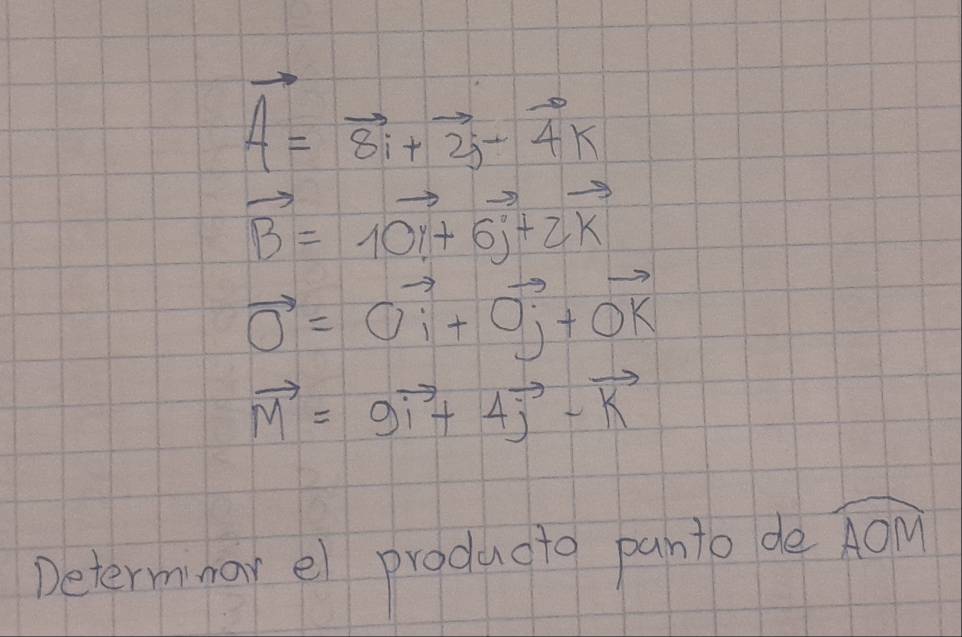 A⃗ = 8⃗i + 2⃗j - 4⃗K
B⃗ = 10i⃗ + 6j⃗ + 2K⃗
O⃗ = 0i⃗ + 0j⃗ + 0K⃗
M⃗ = 9i⃗ + 4j⃗ - K⃗
Determinar el producto punto de A͡OM